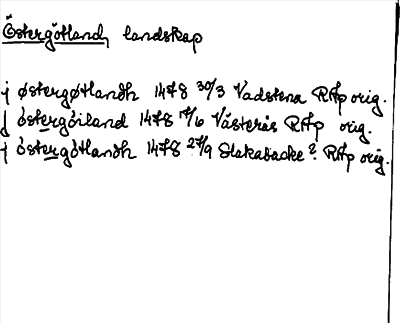 Östergötland, landskap
j østergøtlandh 1478 30/3 Vadstena RAp orig.
j östergöiland 1478 17/6 Västerås RAp orig.
j östergötlandh 1478 27/9 Slakabacke? RAp orig.